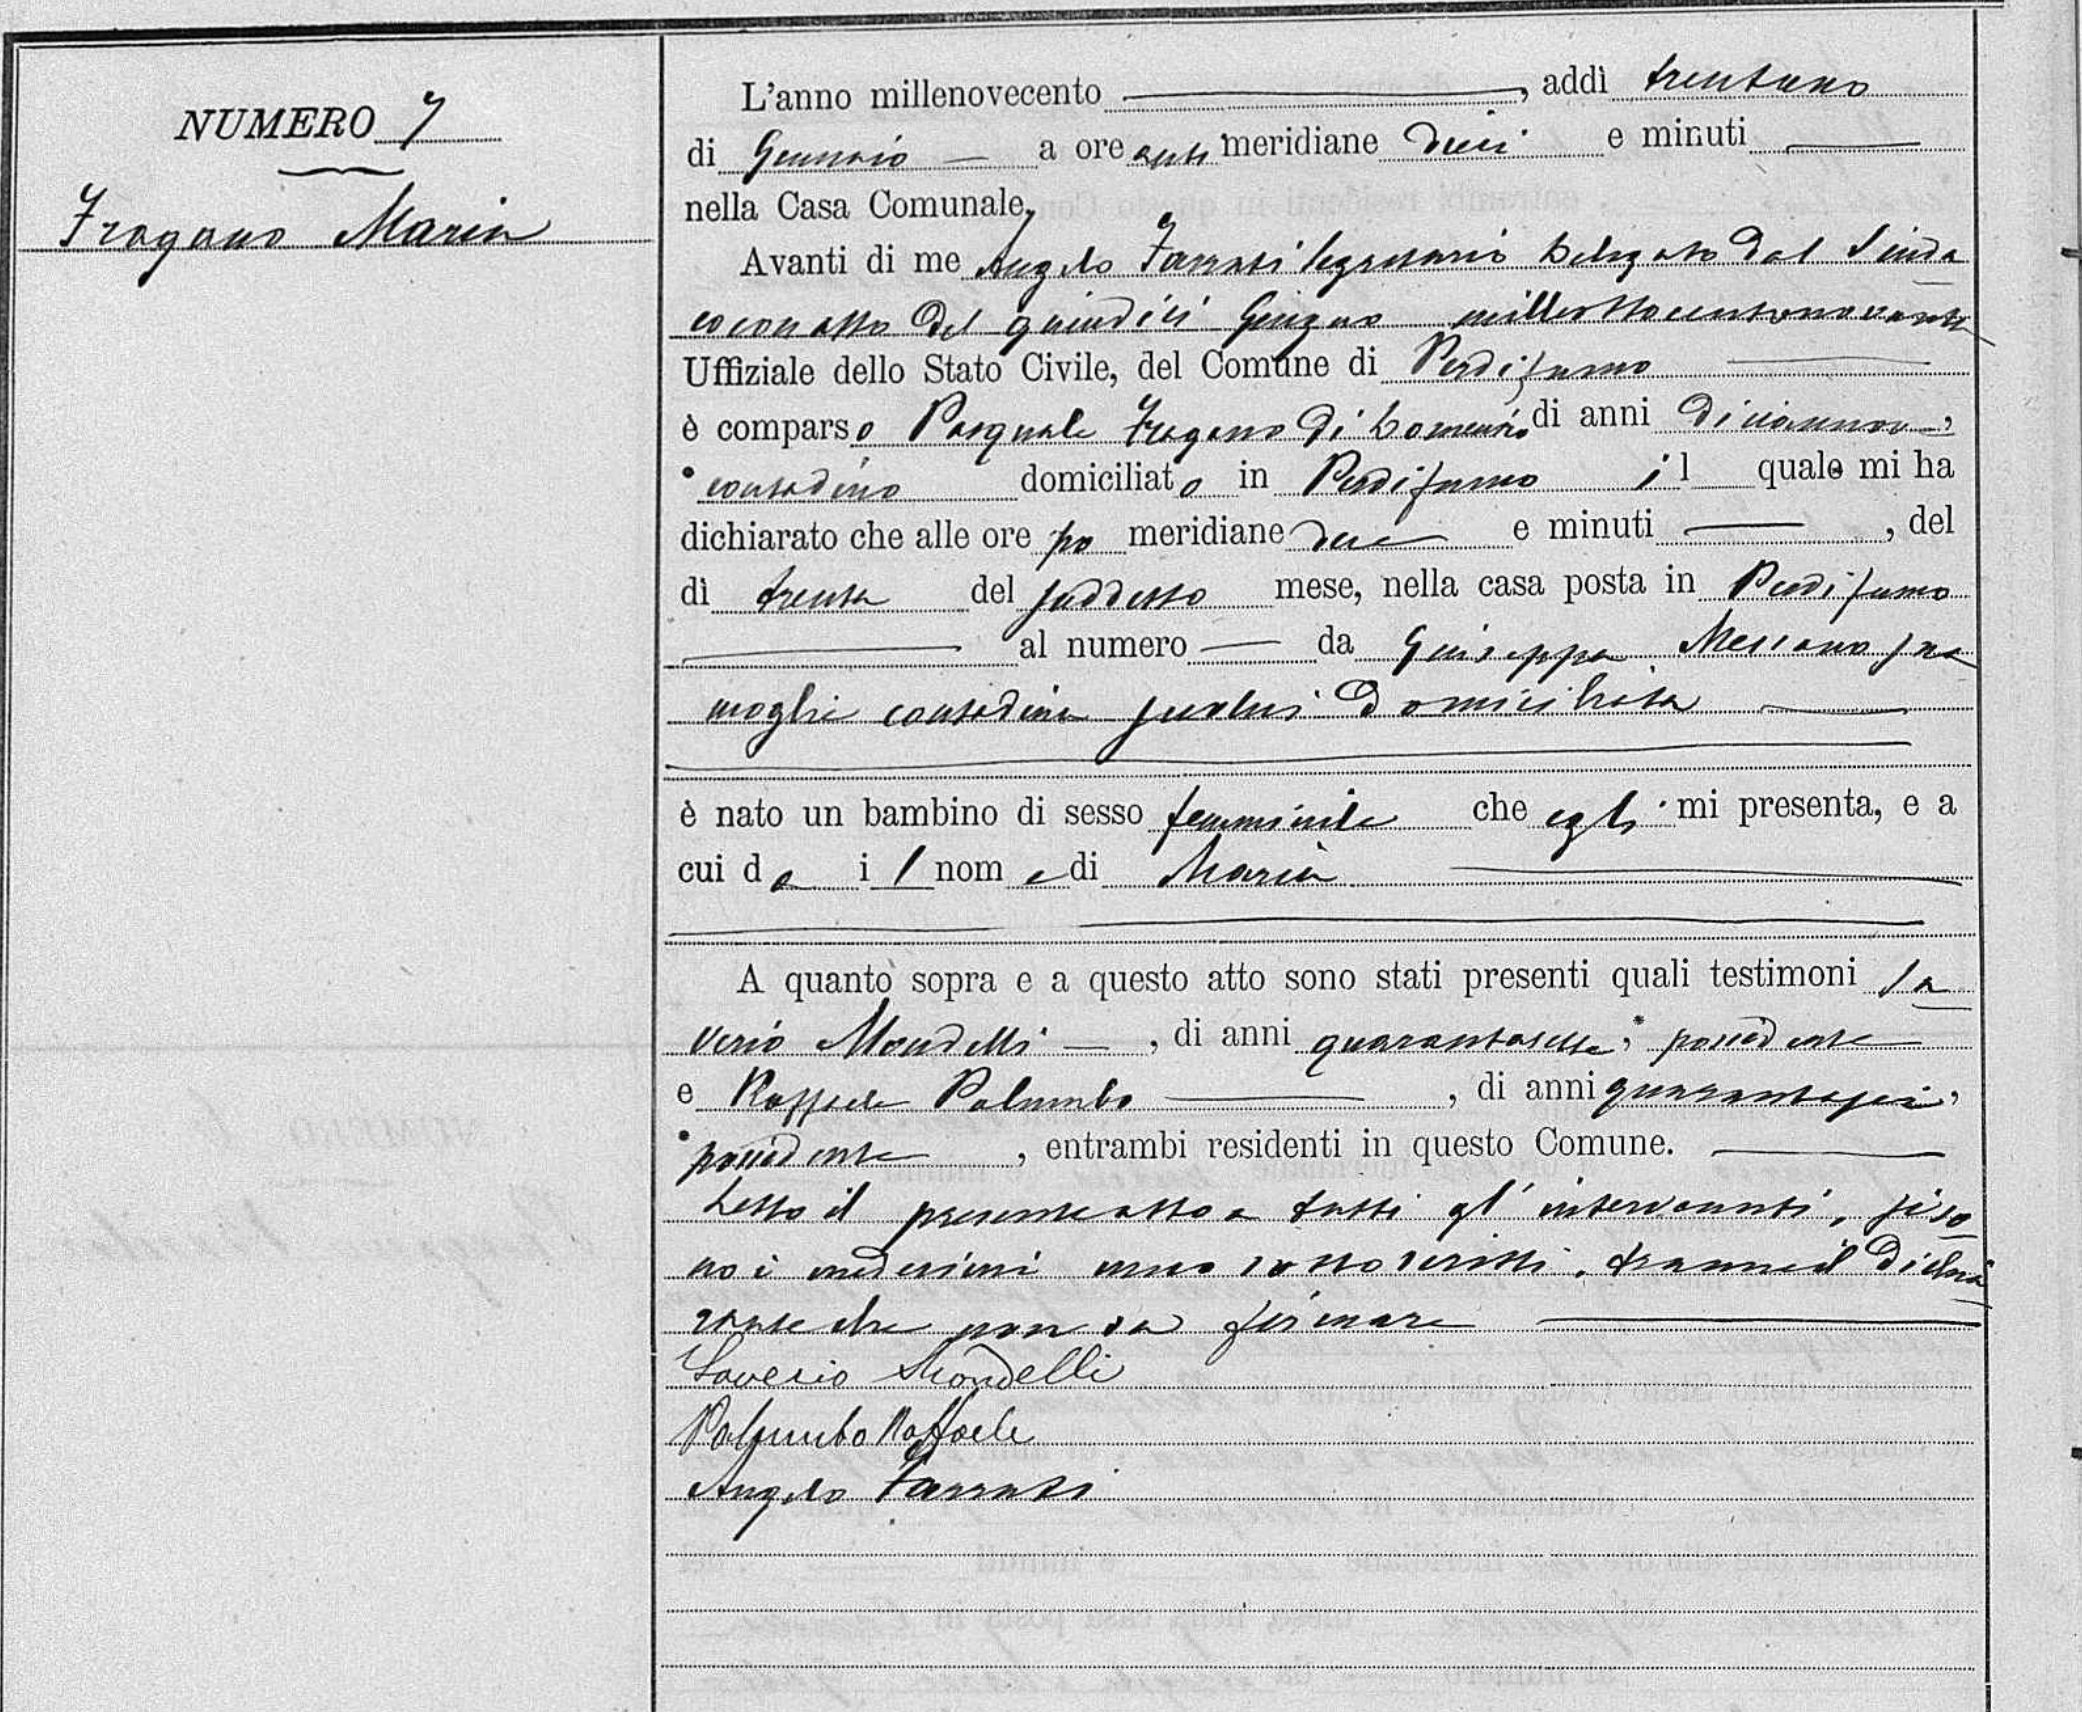 NUMERO 7
Fragano Maria
L'anno millenovecento, addì trentuno
di Gennaio a ore anti meridiane dieci e minuti
nella Casa Comunale,
Avanti di me Angelo Farrati Segretario Delegato dal Sinda
co con atto del quindici Giugno milleottocentonovanta
Uffiziale dello Stato Civile, del Comune di Perdifumo
è comparso Pasquale Fragano di Domenico di anni diciannove,
contadino domiciliato in Perdifumo il quale mi ha
dichiarato che alle ore po meridiane due e minuti, del
dì trenta del suddetto mese, nella casa posta in Perdifumo
al numero da Giuseppa sua
moglie contadina seco lui domiciliata
è nato un bambino di sesso femminile che egli mi presenta, e a
cui da il nome di Maria
A quanto sopra e a questo atto sono stati presenti quali testimoni Sa
verio Mondelli, di anni quarantasette, possidente
e Raffaele Palumbo, di anni quarantasei,
possidente, entrambi residenti in questo Comune.
Letto il presente atto a tutti gl'intervenuti, si so
no i medesimi meco sottoscritti, tranne il dichia
rante che non sa firmare
Saverio Mondelli
Palumbo Raffaele
Angelo Farrati